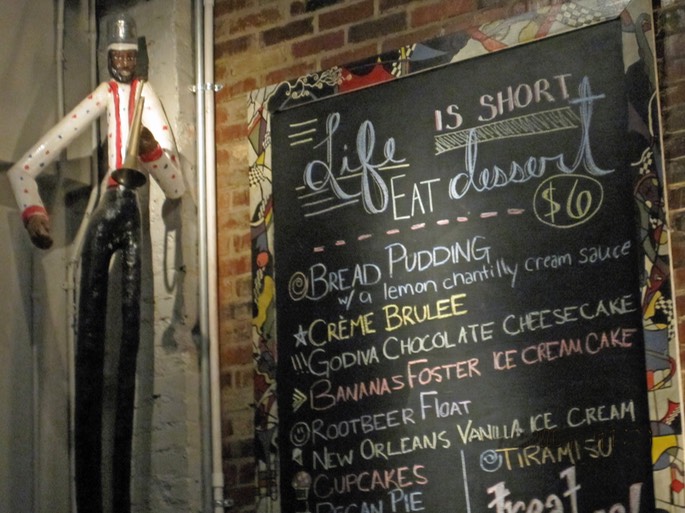 Life IS SHORT
EAT dessert
$6
BREAD PUDDING
w/ a lemon chantilly cream sauce
CRÈME BRULEE
!!! GODIVA CHOCOLATE CHEESECAKE
BANANAS FOSTER ICE CREAM CAKE
ROOTBEER FLOAT
NEW ORLEANS VANILLA ICE CREAM
CUPCAKES
TIRAMISU
PECAN PIE
treat